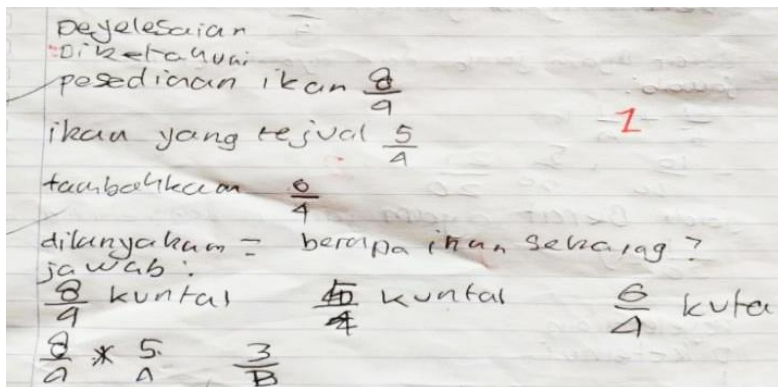 Peyelesaian
Diketahui
pesediaan ikan 8/9
1
ikan yang tejual 5/4
tambahkan 6/4
ditanyakan = berapa ikan sekarag?
jawab:
8/9 kuntal 5/4 kuntal 6/4 kuta
8/9 * 5/4 3/B